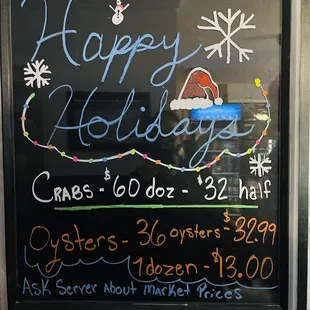 Happy
Holidays
CRABS - $60 doz - $32 half
Oysters - 36 oysters - $32.99
1dozen - $13.00
Ask Server About Market Prices